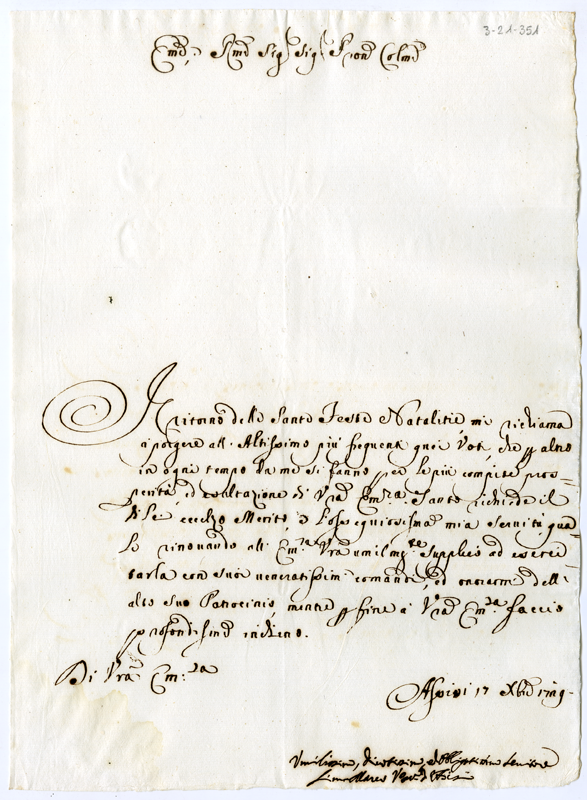 3-21-351
Em.o e Rm.o Sig.r Sig.r P.ron Colmo
Il ritorno delle Sante Feste Natalitie mi richiama
a porgere all'Altissimo più frequenti quei Voti, che p altro
in ogni tempo da me si fanno per le più compite pros-
perità, ed esaltazione di Vra Em.za. Tanto richiede il
di Lei eccelso Merito, e l'ossequiosissima mia servitù, qua-
le rinovando all'Em.za Vra umilm.te supplico ad eserci-
tarla con suoi veneratissimi comandi, ed onorarmi dell'
alto suo Patrocinio, mentre p fine a Vra Em.za faccio
profondissimo inchino.
Di Vra Em.za
Assisi 17 Xbre
Umilissimo, Divotissimo, ed Obbligatissimo Servitore